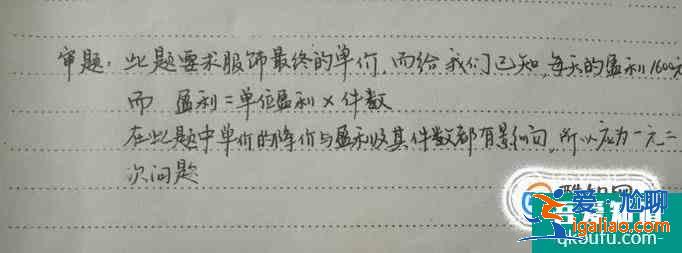 审题：此题要求服饰最终的单价，而给我们已知，每天的盈利1600元
而 盈利＝单位盈利×件数
在此题中单价的降价与盈利及其件数都有影响，所以应为一元二
次问题
酷知网
爱·尬聊
吾爱和道
jgaliao.com
qkoufu.com